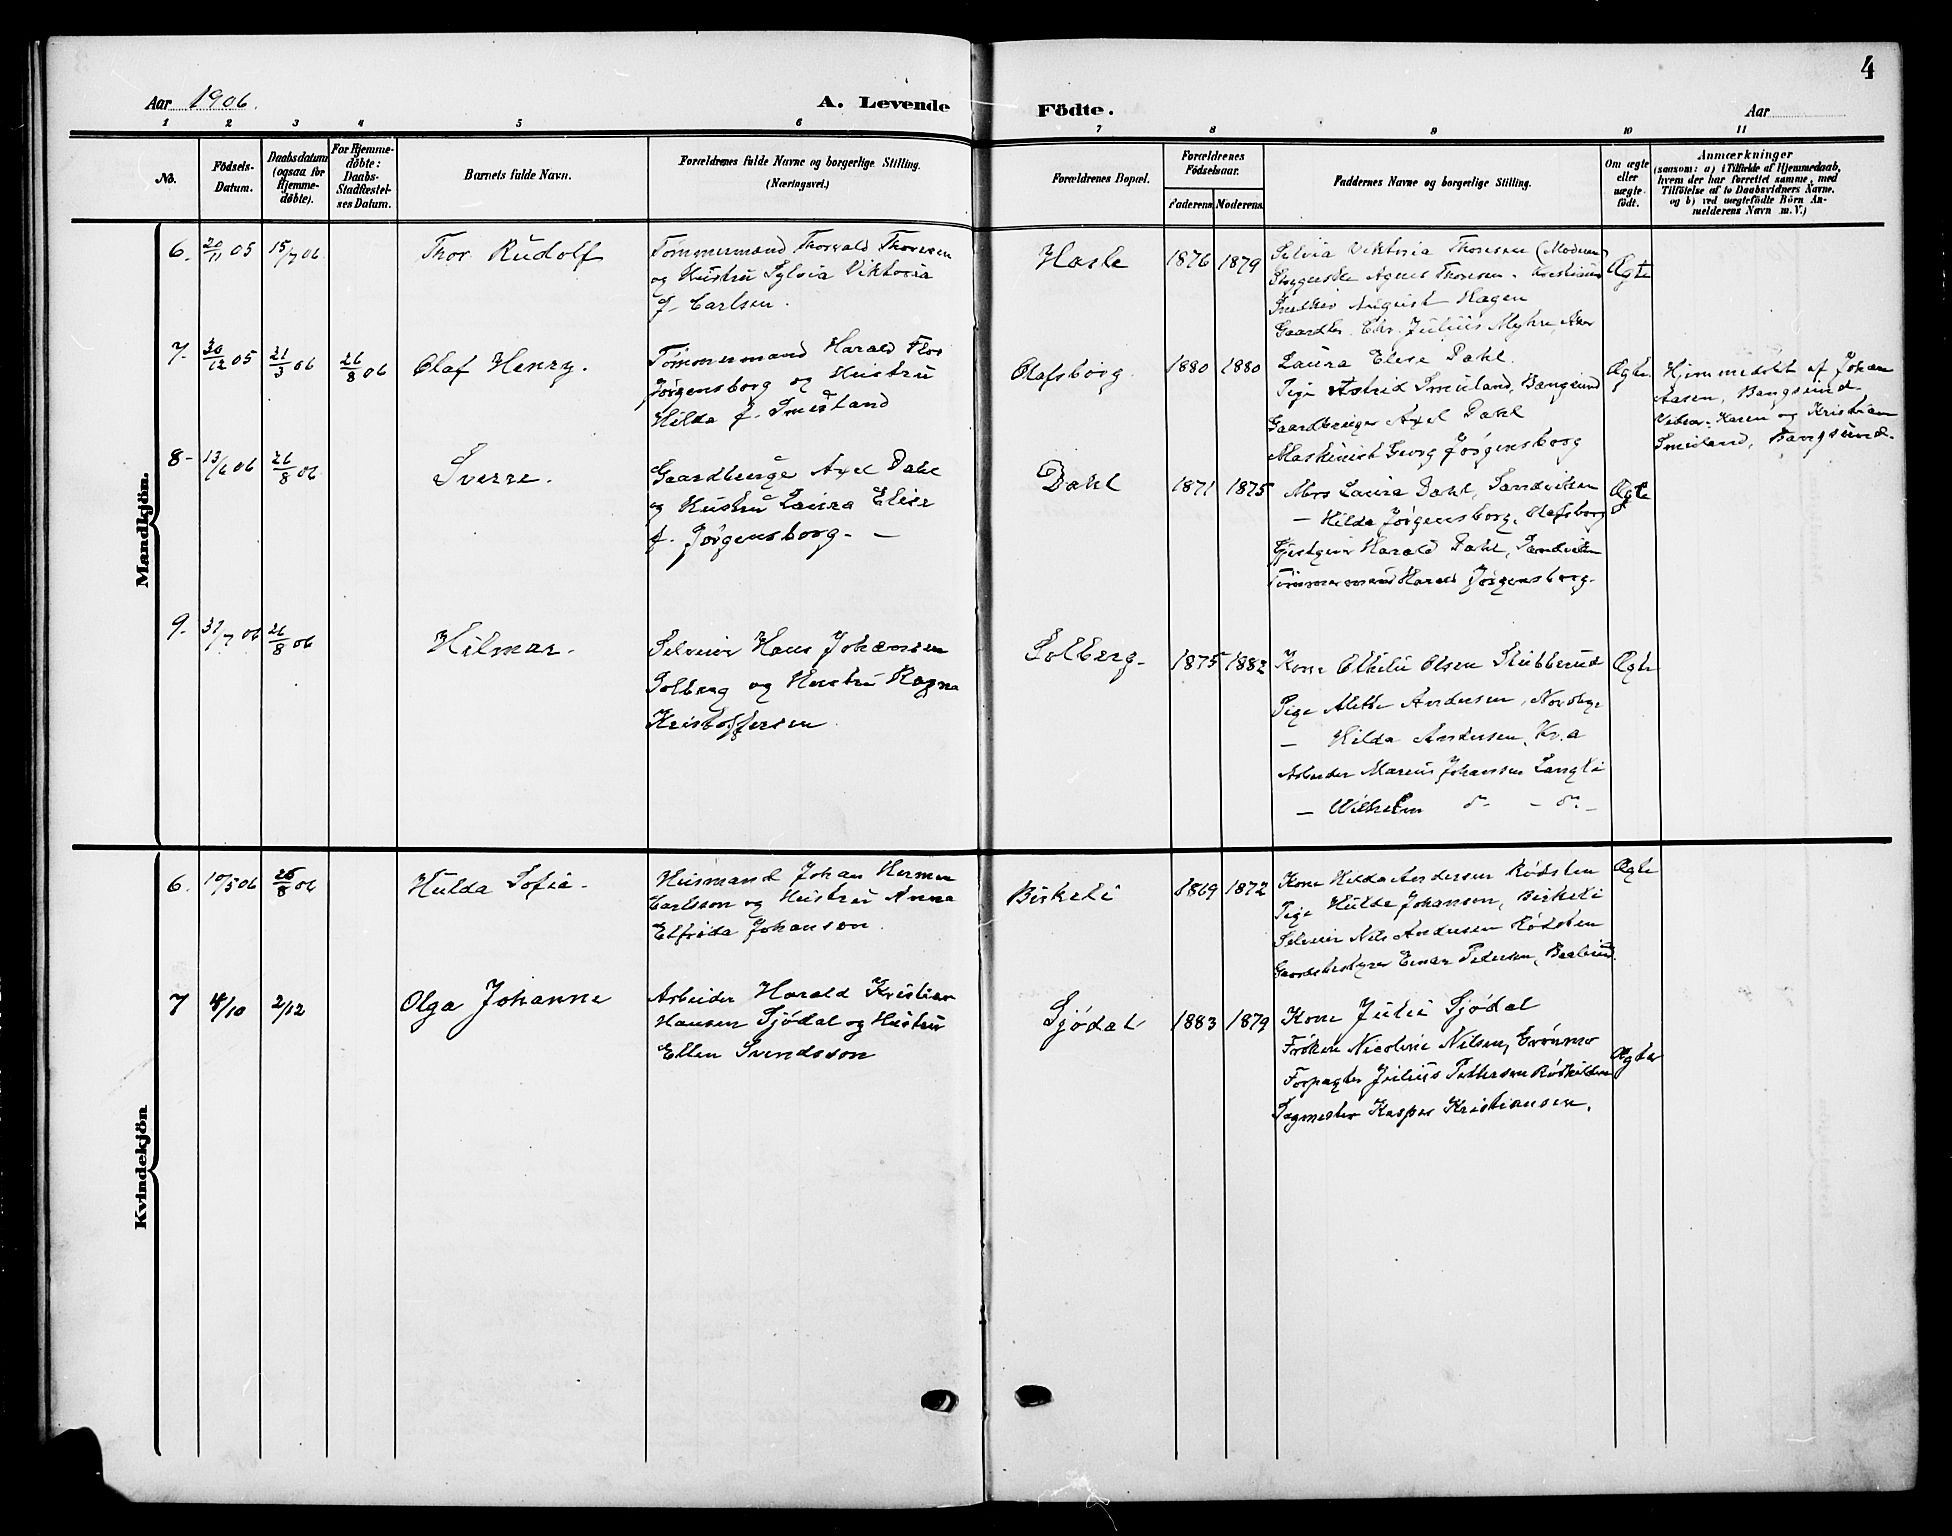 4
Aar 1906.
A. Levende Födte.
Aar
1 2 3 4 5 6 7 8 9 10 11
No.
Födsels-
Datum.
Daabsdatum
(ogsaa for
Hjemme-
döbte).
For Hjemme-
döbte:
Daabs-
Stadfæstel-
ses Datum.
Barnets fulde Navn.
Forældrenes fulde Navne og borgerlige Stilling.
(Næringsvei.)
Forældrenes Bopæl.
Forældrenes
Födselsaar.
Faderens. Moderens.
Faddernes Navne og borgerlige Stilling.
Om ægte
eller
uægte
födt.
Anmærkninger
(saasom: a) i Tilfælde af Hjemmedaab,
hvem der har forrettet samme, med
Tilföielse af to Daabsvidners Navne,
og b) ved uægtefödte Börn An-
melderens Navn m. V.)
Mandkjön.
6. 20/11 05 15/7 06
Thor Rudolf
Tømmermand Thorvald Thoresen
og Hustru Sylvia Viktoria
f. Carlsen.
Hasle
1876 1879
Silvia Viktoria Thoresen (Moderen)
Agnes Thoresen.
Snekker August Hagen
Gaardbr. Chr. Julius Myhre
Ægte
7. 30/12 05 21/3 06 26/8 06
Olaf Henry.
Tømmermand Harald Flor
Jørgensborg og Hustru
Hilda f. Smestand
Olafsborg.
1880 1880
Laura Elise Dahl.
Pige Astrid Smuland, Bangsund
Gaardbruger Axel Dahl
Maskinist Georg Jørgensborg
Ægte.
Hjemmedøbt af Johan
Aasen, Bangsund
Vidner: Karen og Kristian
Smuland, Bangsund.
8- 13/6 06 26/8 06
Sverre.
Gaardbruge Axel Dahl
og Hustru Laura Elise
f. Jørgensborg. —
Dahl
1871 1875
Mrs Laura Dahl, Sandviken
— Hilda Jørgensborg, Olafsborg
Gjestgiver Harald Dahl, Sandviken
Tømmermand Harald Jørgensborg.
Ægte
9. 31/7 06 26/8 06
Hilmar.
Selveier Hans Johansen
Solberg og Hustru Ragna
Kristoffersen.
Solberg-
1875 1882
Kone Othilie Olsen Stubberud
Pige Alette Andersen, Nordbye
— Hilda Andersen, Kr.a
Arbeider Marius Johansen Langli
— Wilhelm do - - do -
Ægte
Kvindekjön
6. 10/5 06 26/8 06
Hulda Sofie.
Husmand Johan Herman
Carlsson og Hustru Anna
Elfrida Johanson.
Birkeli
1869 1872
Kone Hilda Andersen Rødsten
Pige Hulda Johansen, Birkeli
Selveier Nils Andersen Rødsten
Gaardsbestyrer Einar Pedersen,
Ægte
7 4/10 2/12
Olga Johanne
Arbeider Harald Kristian
Hansen Sjødal og Hustru
Ellen Svendsson
Sjødal
1883 1879
Kone Julie Sjødal
Frøken Nicoline Nilsen, Grønmo
Forpagter Julius Pettersen
Sagmester Kasper Kristiansen.
Ægte